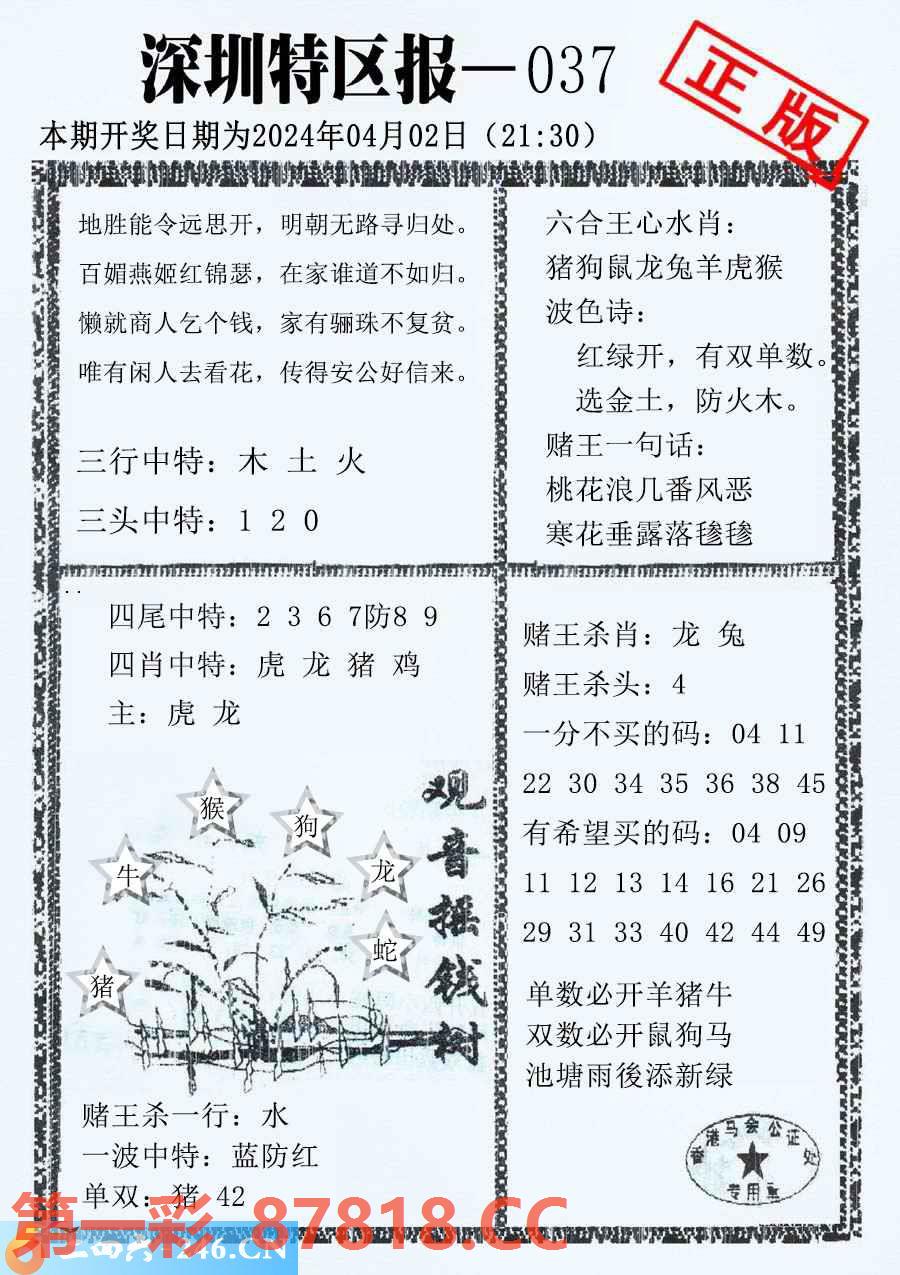 深圳特区报—037
正版
本期开奖日期为2024年04月02日（21:30）
地胜能令远思开，明朝无路寻归处。
百媚燕姬红锦瑟，在家谁道不如归。
懒就商人乞个钱，家有骊珠不复贫。
唯有闲人去看花，传得安公好信来。
三行中特：木 土 火
三头中特：1 2 0
六合王心水肖：
猪狗鼠龙兔羊虎猴
波色诗：
红绿开，有双单数。
选金土，防火木。
赌王一句话：
桃花浪几番风恶
寒花垂露落毶毶
四尾中特：2 3 6 7防8 9
四肖中特：虎 龙 猪 鸡
主：虎 龙
猴
狗
牛
龙
蛇
猪
观音摇钱树
赌王杀一行：水
一波中特：蓝防红
单双：猪 42
赌王杀肖：龙 兔
赌王杀头：4
一分不买的码：04 11
22 30 34 35 36 38 45
有希望买的码：04 09
11 12 13 14 16 21 26
29 31 33 40 42 44 49
单数必开羊猪牛
双数必开鼠狗马
池塘雨後添新绿
香港马会公证处
专用章
第一彩 87818.CC
246.CN